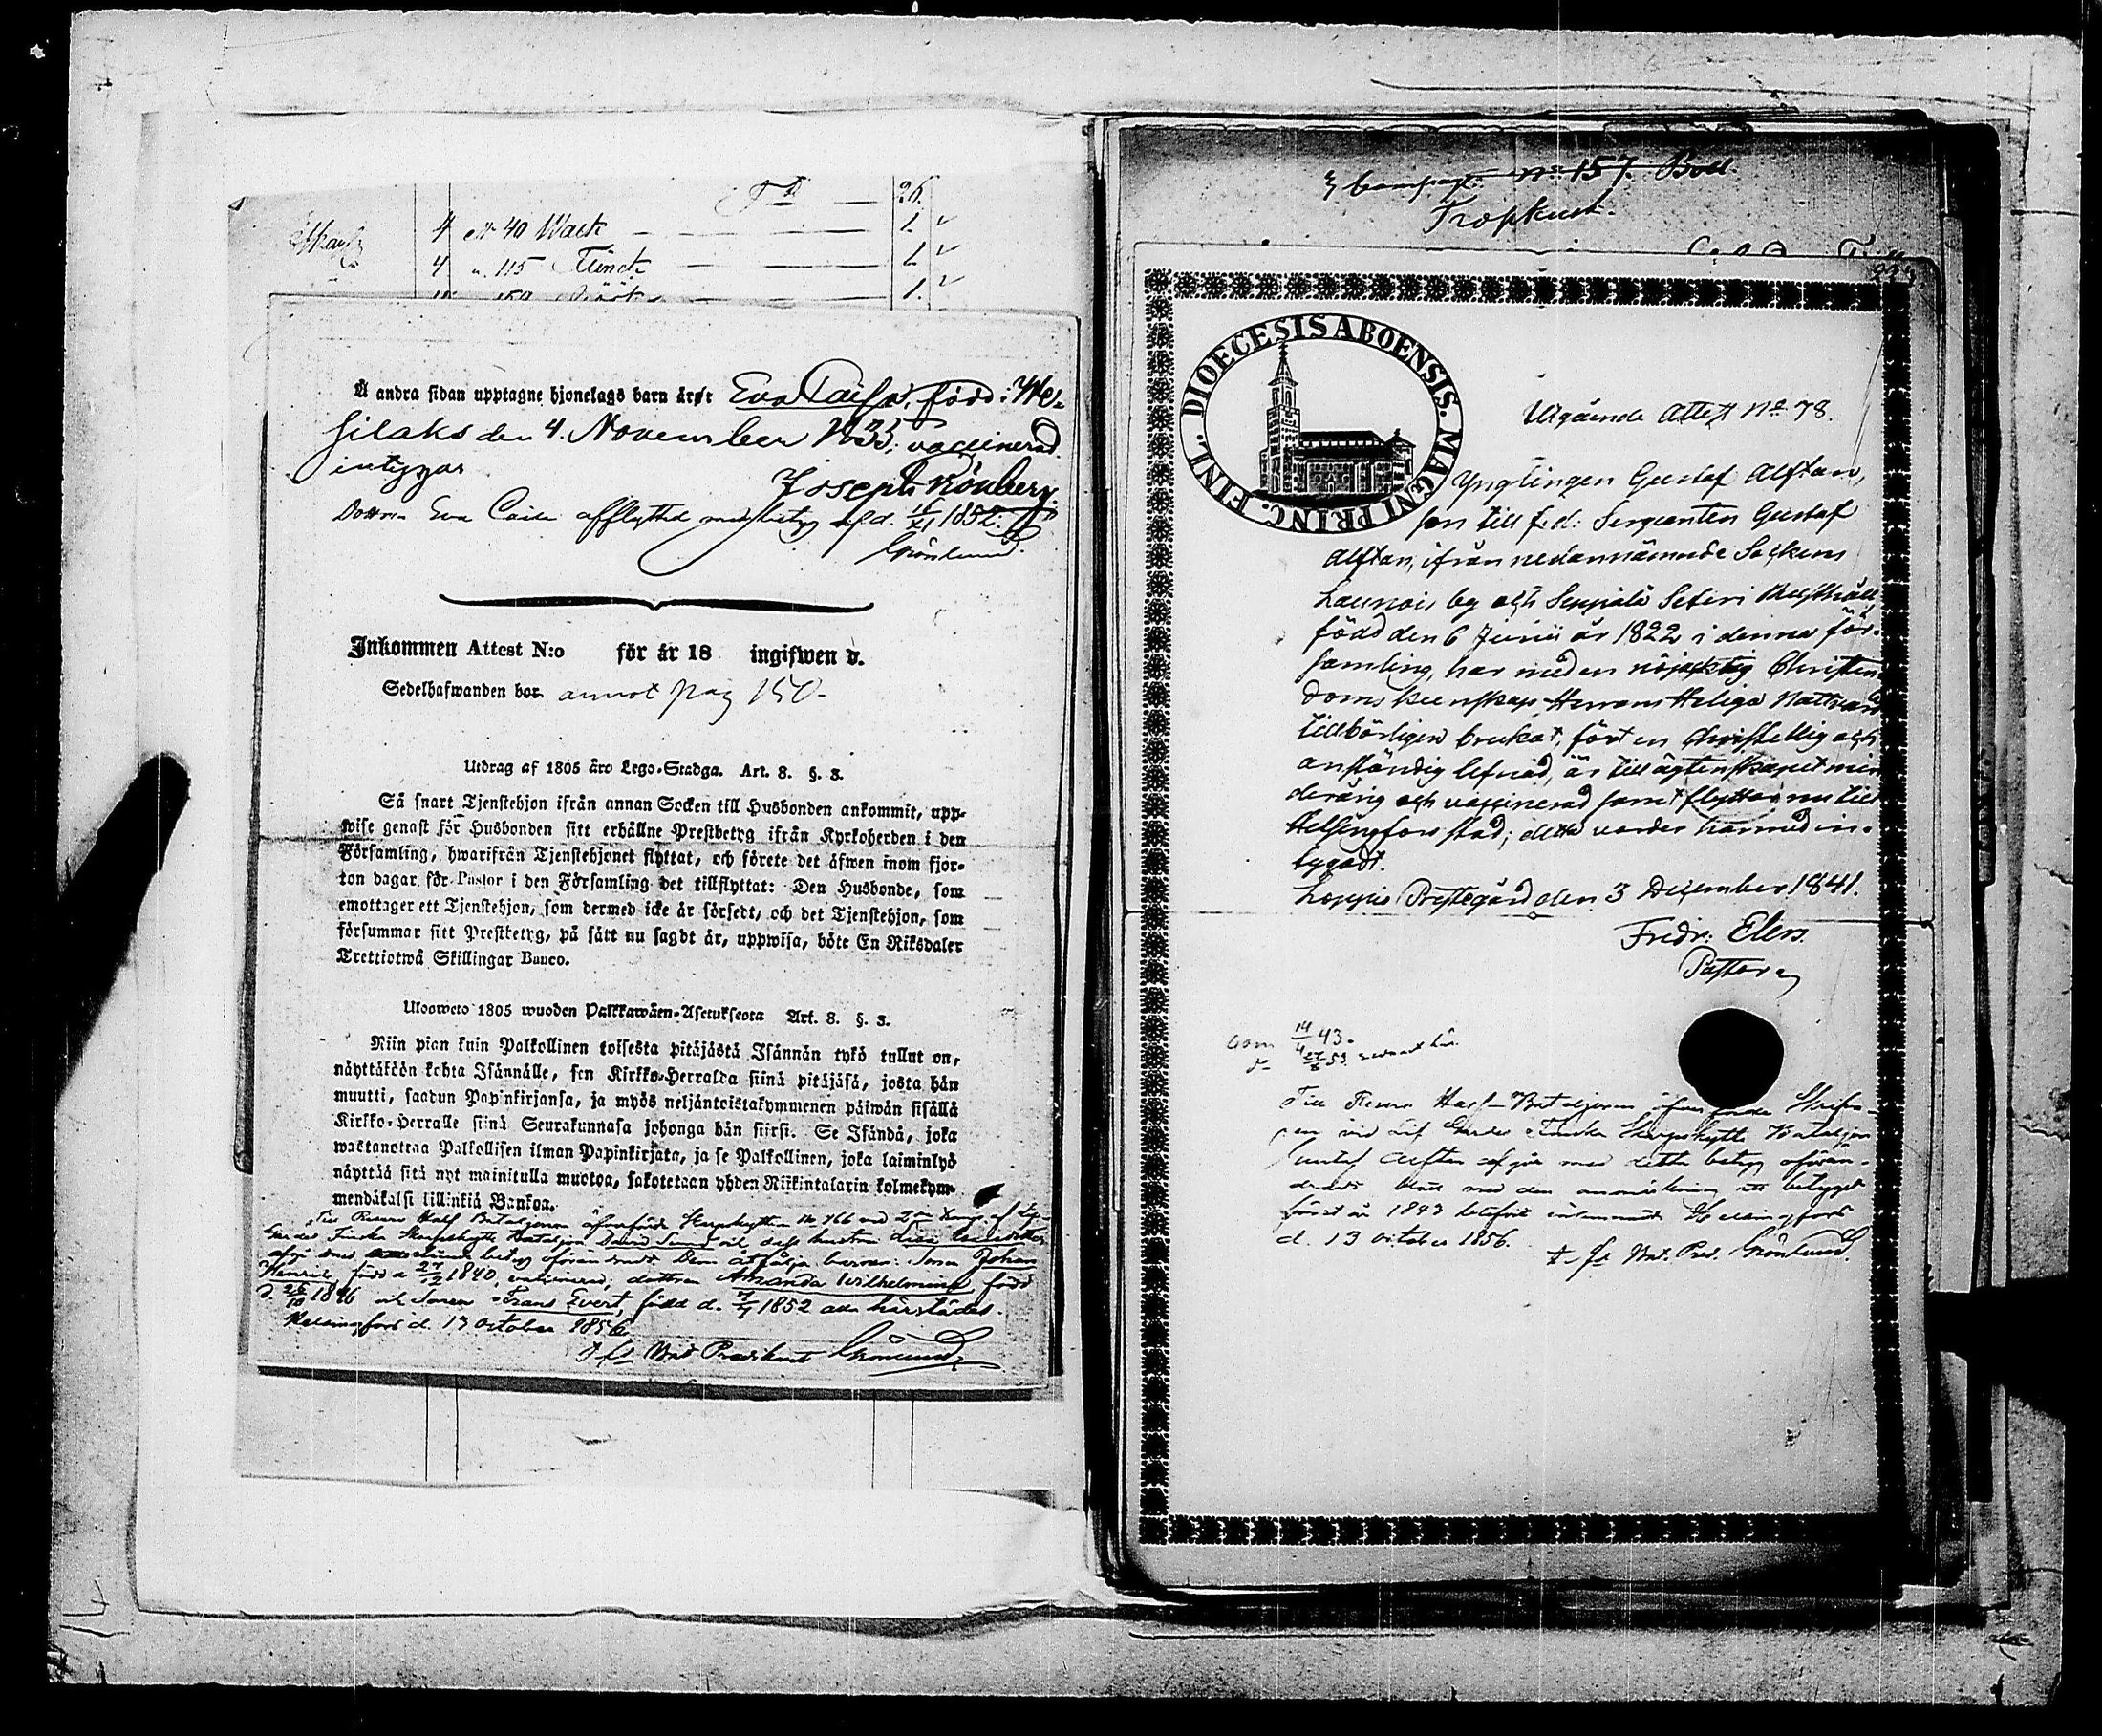 26.
4 No 40 Wack 1.
4 " 115 Flinck 1.
1.
Å andra sidan upptagne hjonelags barn äro: Eva Caisa, född i We-
silaks den 4 November 1833; vaccinerad
intygar
Joseph Rönberg.
Dottren Eva Caisa afflyttad med betyg af d. 1852.
Grönlund.
Inkommen Attest N:o för år 18 ingifwen d.
Sedelhafwanden bor annot pag 150.
Utdrag af 1805 års Lego-Stadga. Art. 8. §. 3.
Så snart Tjenstehjon ifrån annan Socken till Husbonden ankommit, upp-
wise genast för Husbonden sitt erhållne Prestbetyg ifrån Kyrkoherden i den
Församling, hwarifrån Tjenstehjonet flyttat, och förete det äfwen inom fjor-
ton dagar för Pastor i den Församling det tillflyttat: Den Husbonde, som
emottager ett Tjenstehjon, som dermed icke är försedt, och det Tjenstehjon, som
försummar sitt Prestbetyg, på sätt nu sagdt är, uppwisa, böte En Riksdaler
Trettiotwå Skillingar Banco.
Uloosweto 1805 wuoden Palkkawäen-Asetuksesta Art. 8. §. 3.
Niin pian kuin Palkollinen toisesta pitäjästä Isännän tykö tullut on,
näyttäköön kohta Isännälle, sen Kirkko-Herralda siinä pitäjäsä, josta hän
muutti, saadun Papinkirjansa, ja myös neljäntoistakymmenen päiwän sisällä
Kirkko-Herralle siinä Seurakunnasa johonga hän siirsi. Se Isändä, joka
wastanottaa Palkollisen ilman Papinkirjata, ja se Palkollinen, joka laiminlyö
näyttää sitä nyt mainitulla muotoa, sakotetaan yhden Riikintalarin kolmekym-
mendäkaksi killinkiä Bankoa.
Till Reserv Half Bataljonen öfverförde Skarpskytten No 166 vid 2dra Komp. af Lif-
Gardes Finska Skarpskytte Bataljon David Sund och dess hustru Lisa
afgå med betyg oförändradt. Dem åtfölja barnen: Sonen Johan
Henrik, född d. 27/12 1840, vaccinerad; dottren Amanda Wilhelmina, född
d. 1846 och Sonen Frans Evert, född d. 1852 alla härstädes.
Helsingfors d. 13 October 1856.
Bat. Predikant Grönlund
No 157. Boll.
Tropkust.
DIOECESIS ABOENSIS. MAGNI PRINC. FINL.
Utgående Attest No 78.
Ynglingen Gustaf Alftan,
son till f. d. Sergeanten Gustaf
Alftan, ifrån nedannämnde Sockens
Launois by och Seppälä Säteri
född den 6 Junii år 1822 i denna för-
samling, har med en nöjaktig Christen-
doms kunskap Herrans Heliga Nattvard
tillbörligen brukat, fört en Christellig och
anständig lefnad, är till ägtenskapet min-
derårig och vaccinerad samt flyttar nu till
Helsingfors stad; detta varder härmed in-
tygadt.
Loppis Prestegård den 3 December 1841.
Fredr. Elers.
Pastor
14/4 43.
Till Reserv Half-Bataljonen öfverförde Skrifva-
ren vid Lif Gardes Finska Skarpskytte Bataljon
Gustaf Alftan afgår med detta betyg oförän-
dradt blott med den anmärkning att betyget
först år 1843 blifvit inlemnadt. Helsingfors
d. 13 October 1856.
Bat. Pred. Grönlund.